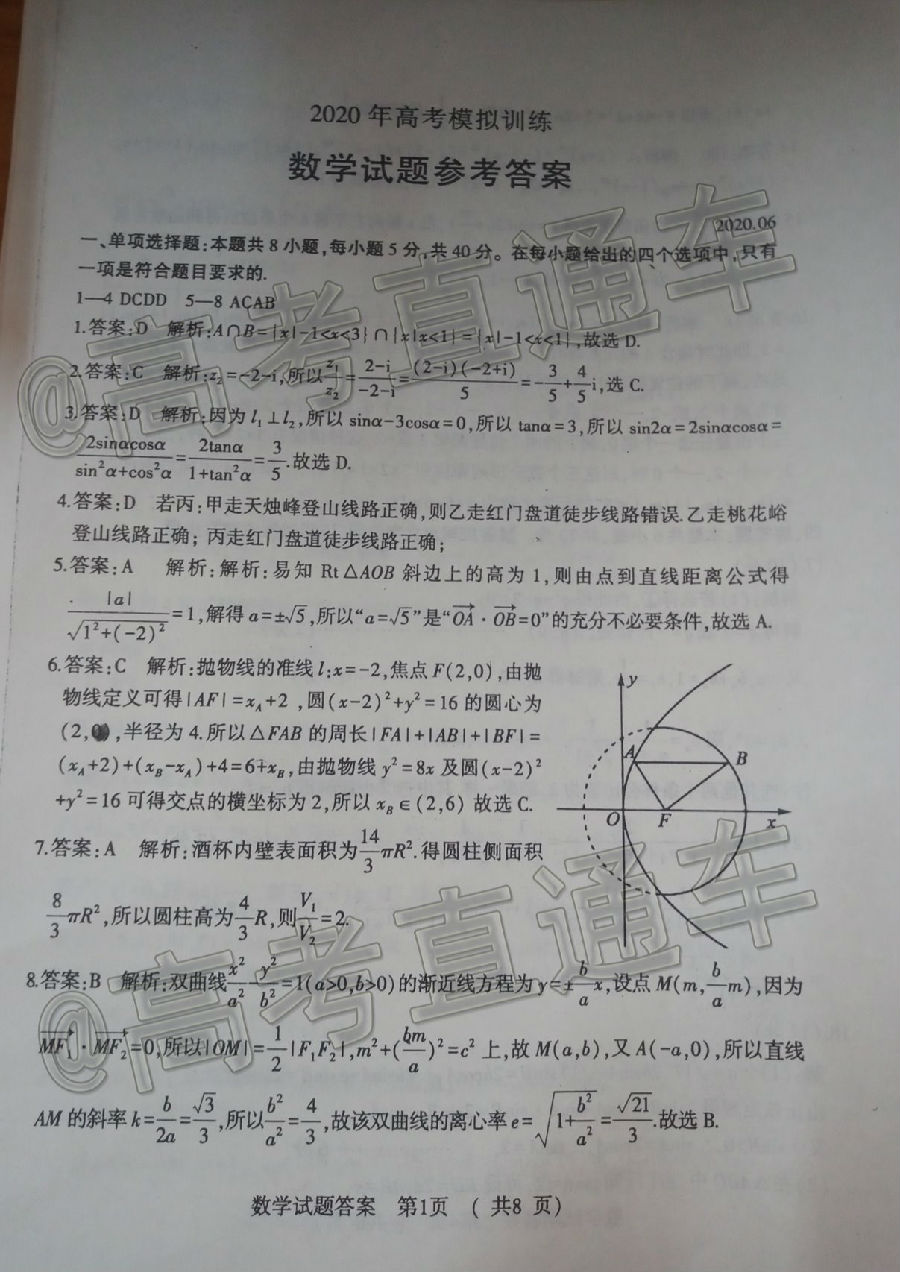 2020 年高考模拟训练
数学试题参考答案
2020.06
一、单项选择题:本题共 8 小题,每小题 5 分,共 40 分。在每小题给出的四个选项中,只有
一项是符合题目要求的.
1—4 DCDD 5—8 ACAB
1.答案:D 解析:A∩B={x|-1<x<3}∩{x|x<1}={x|-1<x<1},故选 D.
2.答案:C 解析:z₂=-2-i,所以z₁/z₂=(2-i)/(-2-i)=(2-i)(-2+i)/5=-3/5+4/5i,选 C.
3.答案:D 解析:因为 l₁⊥l₂,所以 sinα-3cosα=0,所以 tanα=3,所以 sin2α=2sinαcosα=
2sinαcosα/(sin²α+cos²α)=2tanα/(1+tan²α)=3/5.故选 D.
4.答案:D 若丙:甲走天烛峰登山线路正确,则乙走红门盘道徒步线路错误.乙走桃花峪
登山线路正确; 丙走红门盘道徒步线路正确;
5.答案:A 解析:解析:易知 Rt△AOB 斜边上的高为 1,则由点到直线距离公式得
|a|/√(1²+(-2)²)=1,解得 a=±√5,所以“a=√5”是“OA→·OB→=0”的充分不必要条件,故选 A.
6.答案:C 解析:抛物线的准线 l:x=-2,焦点 F(2,0),由抛
物线定义可得|AF|=x_A+2 ,圆(x-2)²+y²=16 的圆心为
(2, ,半径为 4.所以△FAB 的周长|FA|+|AB|+|BF|=
(x_A+2)+(x_B-x_A)+4=6+x_B,由抛物线 y²=8x 及圆(x-2)²
+y²=16 可得交点的横坐标为 2,所以 x_B∈(2,6) 故选 C.
y
A
B
O
F
x
7.答案:A 解析:酒杯内壁表面积为14/3πR².得圆柱侧面积
8/3πR²,所以圆柱高为4/3R,则V₁/V₂=2.
8.答案:B 解析:双曲线x²/a²-y²/b²=1(a>0,b>0)的渐近线方程为 y=±b/a x,设点 M(m,b/a m),因为
MF₁→·MF₂→=0,所以|OM|=1/2|F₁F₂|,m²+(bm/a)²=c² 上,故 M(a,b),又 A(-a,0),所以直线
AM 的斜率 k=b/2a=√3/3,所以b²/a²=4/3,故该双曲线的离心率 e=√(1+b²/a²)=√21/3.故选 B.
数学试题答案 第1页 ( 共8 页)
@高考直通车
@高考直通车